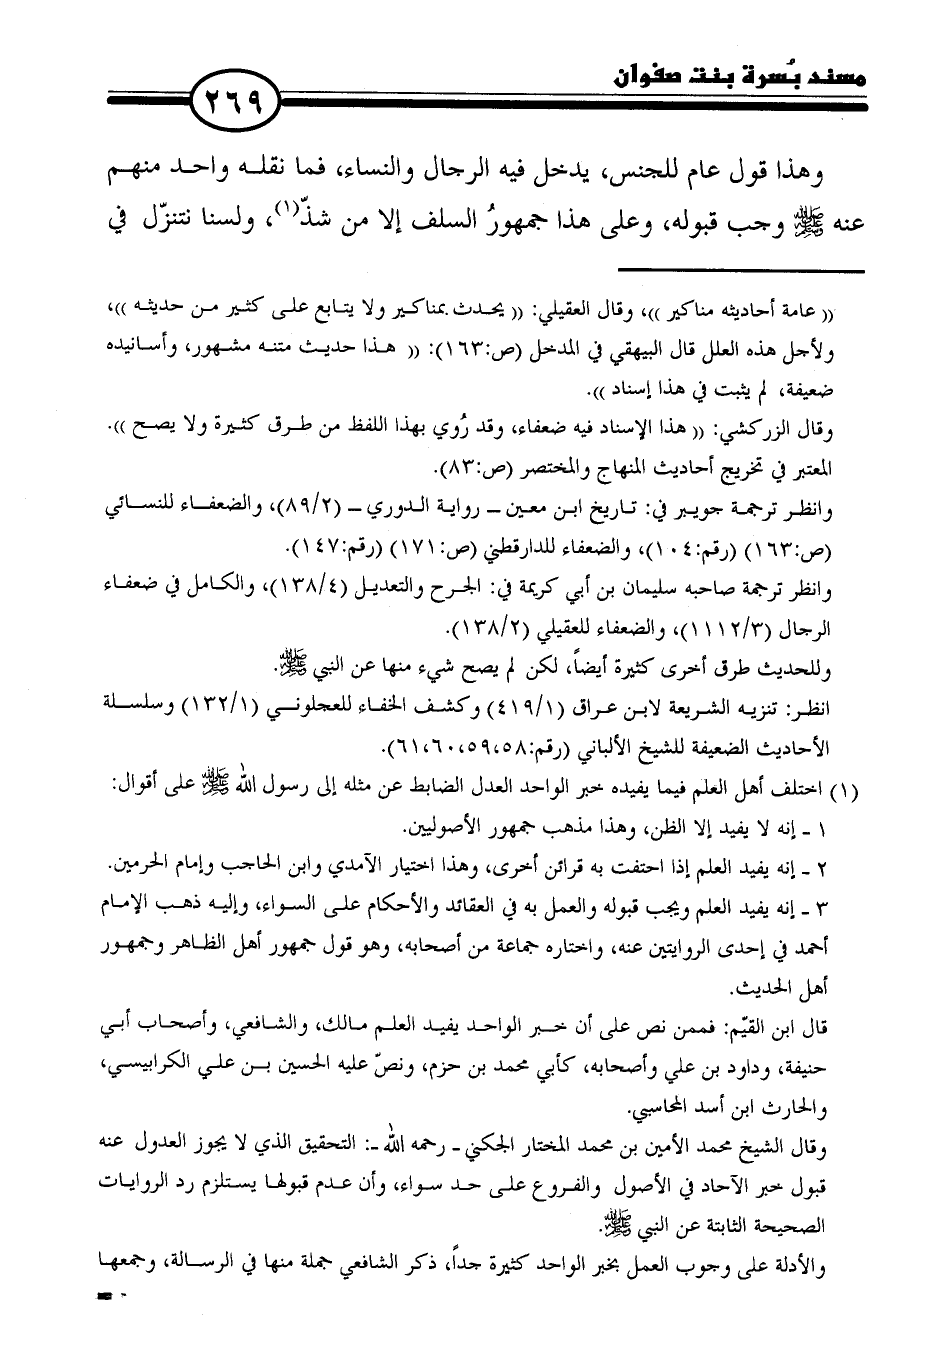 مسند بُسرة بنت صفوان
٢٦٩
وهذا قول عام للجنس، يدخل فيه الرجال والنساء، فما نقله واحد منهم
عنه ﷺ وجب قبوله، وعلى هذا جمهورُ السلف إلا من شذّ(١)، ولسنا نتنزّل في
(( عامة أحاديثه مناكير ))، وقال العقيلي: (( يحدث بمناكير ولا يتابع على كثير من حديثه ))،
ولأجل هذه العلل قال البيهقي في المدخل (ص:١٦٣): (( هذا حديث متنه مشهور، وأسانيده
ضعيفة، لم يثبت في هذا إسناد )).
وقال الزركشي: (( هذا الإسناد فيه ضعفاء، وقد رُوي بهذا اللفظ من طرق كثيرة ولا يصح )).
المعتبر في تخريج أحاديث المنهاج والمختصر (ص:٨٣).
وانظر ترجمة جويبر في: تاريخ ابن معين ــ رواية الدوري ــ (٨٩/٢)، والضعفاء للنسائي
(ص:١٦٣) (رقم:١٠٤)، والضعفاء للدارقطني (ص:١٧١) (رقم:١٤٧).
وانظر ترجمة صاحبه سليمان بن أبي كريمة في: الجرح والتعديل (١٣٨/٤)، والكامل في ضعفاء
الرجال (١١١٢/٣)، والضعفاء للعقيلي (١٣٨/٢).
وللحديث طرق أخرى كثيرة أيضاً، لكن لم يصح شيء منها عن النبي ﷺ.
انظر: تنزيه الشريعة لابن عراق (٤١٩/١) وكشف الخفاء للعجلوني (١٣٢/١) وسلسلة
الأحاديث الضعيفة للشيخ الألباني (رقم:٥٨، ٥٩، ٦٠، ٦١).
(١) اختلف أهل العلم فيما يفيده خبر الواحد العدل الضابط عن مثله إلى رسول الله ﷺ على أقوال:
١ ـ إنه لا يفيد إلا الظن، وهذا مذهب جمهور الأصوليين.
٢ ـ إنه يفيد العلم إذا احتفت به قرائن أخرى، وهذا اختيار الآمدي وابن الحاجب وإمام الحرمين.
٣ ـ إنه يفيد العلم ويجب قبوله والعمل به في العقائد والأحكام على السواء، وإليه ذهب الإمام
أحمد في إحدى الروايتين عنه، واختاره جماعة من أصحابه، وهو قول جمهور أهل الظاهر وجمهور
أهل الحديث.
قال ابن القيّم: فممن نص على أن خبر الواحد يفيد العلم مالك، والشافعي، وأصحاب أبي
حنيفة، وداود بن علي وأصحابه، كأبي محمد بن حزم، ونصّ عليه الحسين بن علي الكرابيسي،
والحارث ابن أسد المحاسبي.
وقال الشيخ محمد الأمين بن محمد المختار الجكني ـ رحمه الله ـ: التحقيق الذي لا يجوز العدول عنه
قبول خبر الآحاد في الأصول والفروع على حد سواء، وأن عدم قبولها يستلزم رد الروايات
الصحيحة الثابتة عن النبي ﷺ.
والأدلة على وجوب العمل بخبر الواحد كثيرة جداً، ذكر الشافعي جملة منها في الرسالة، وجمعها